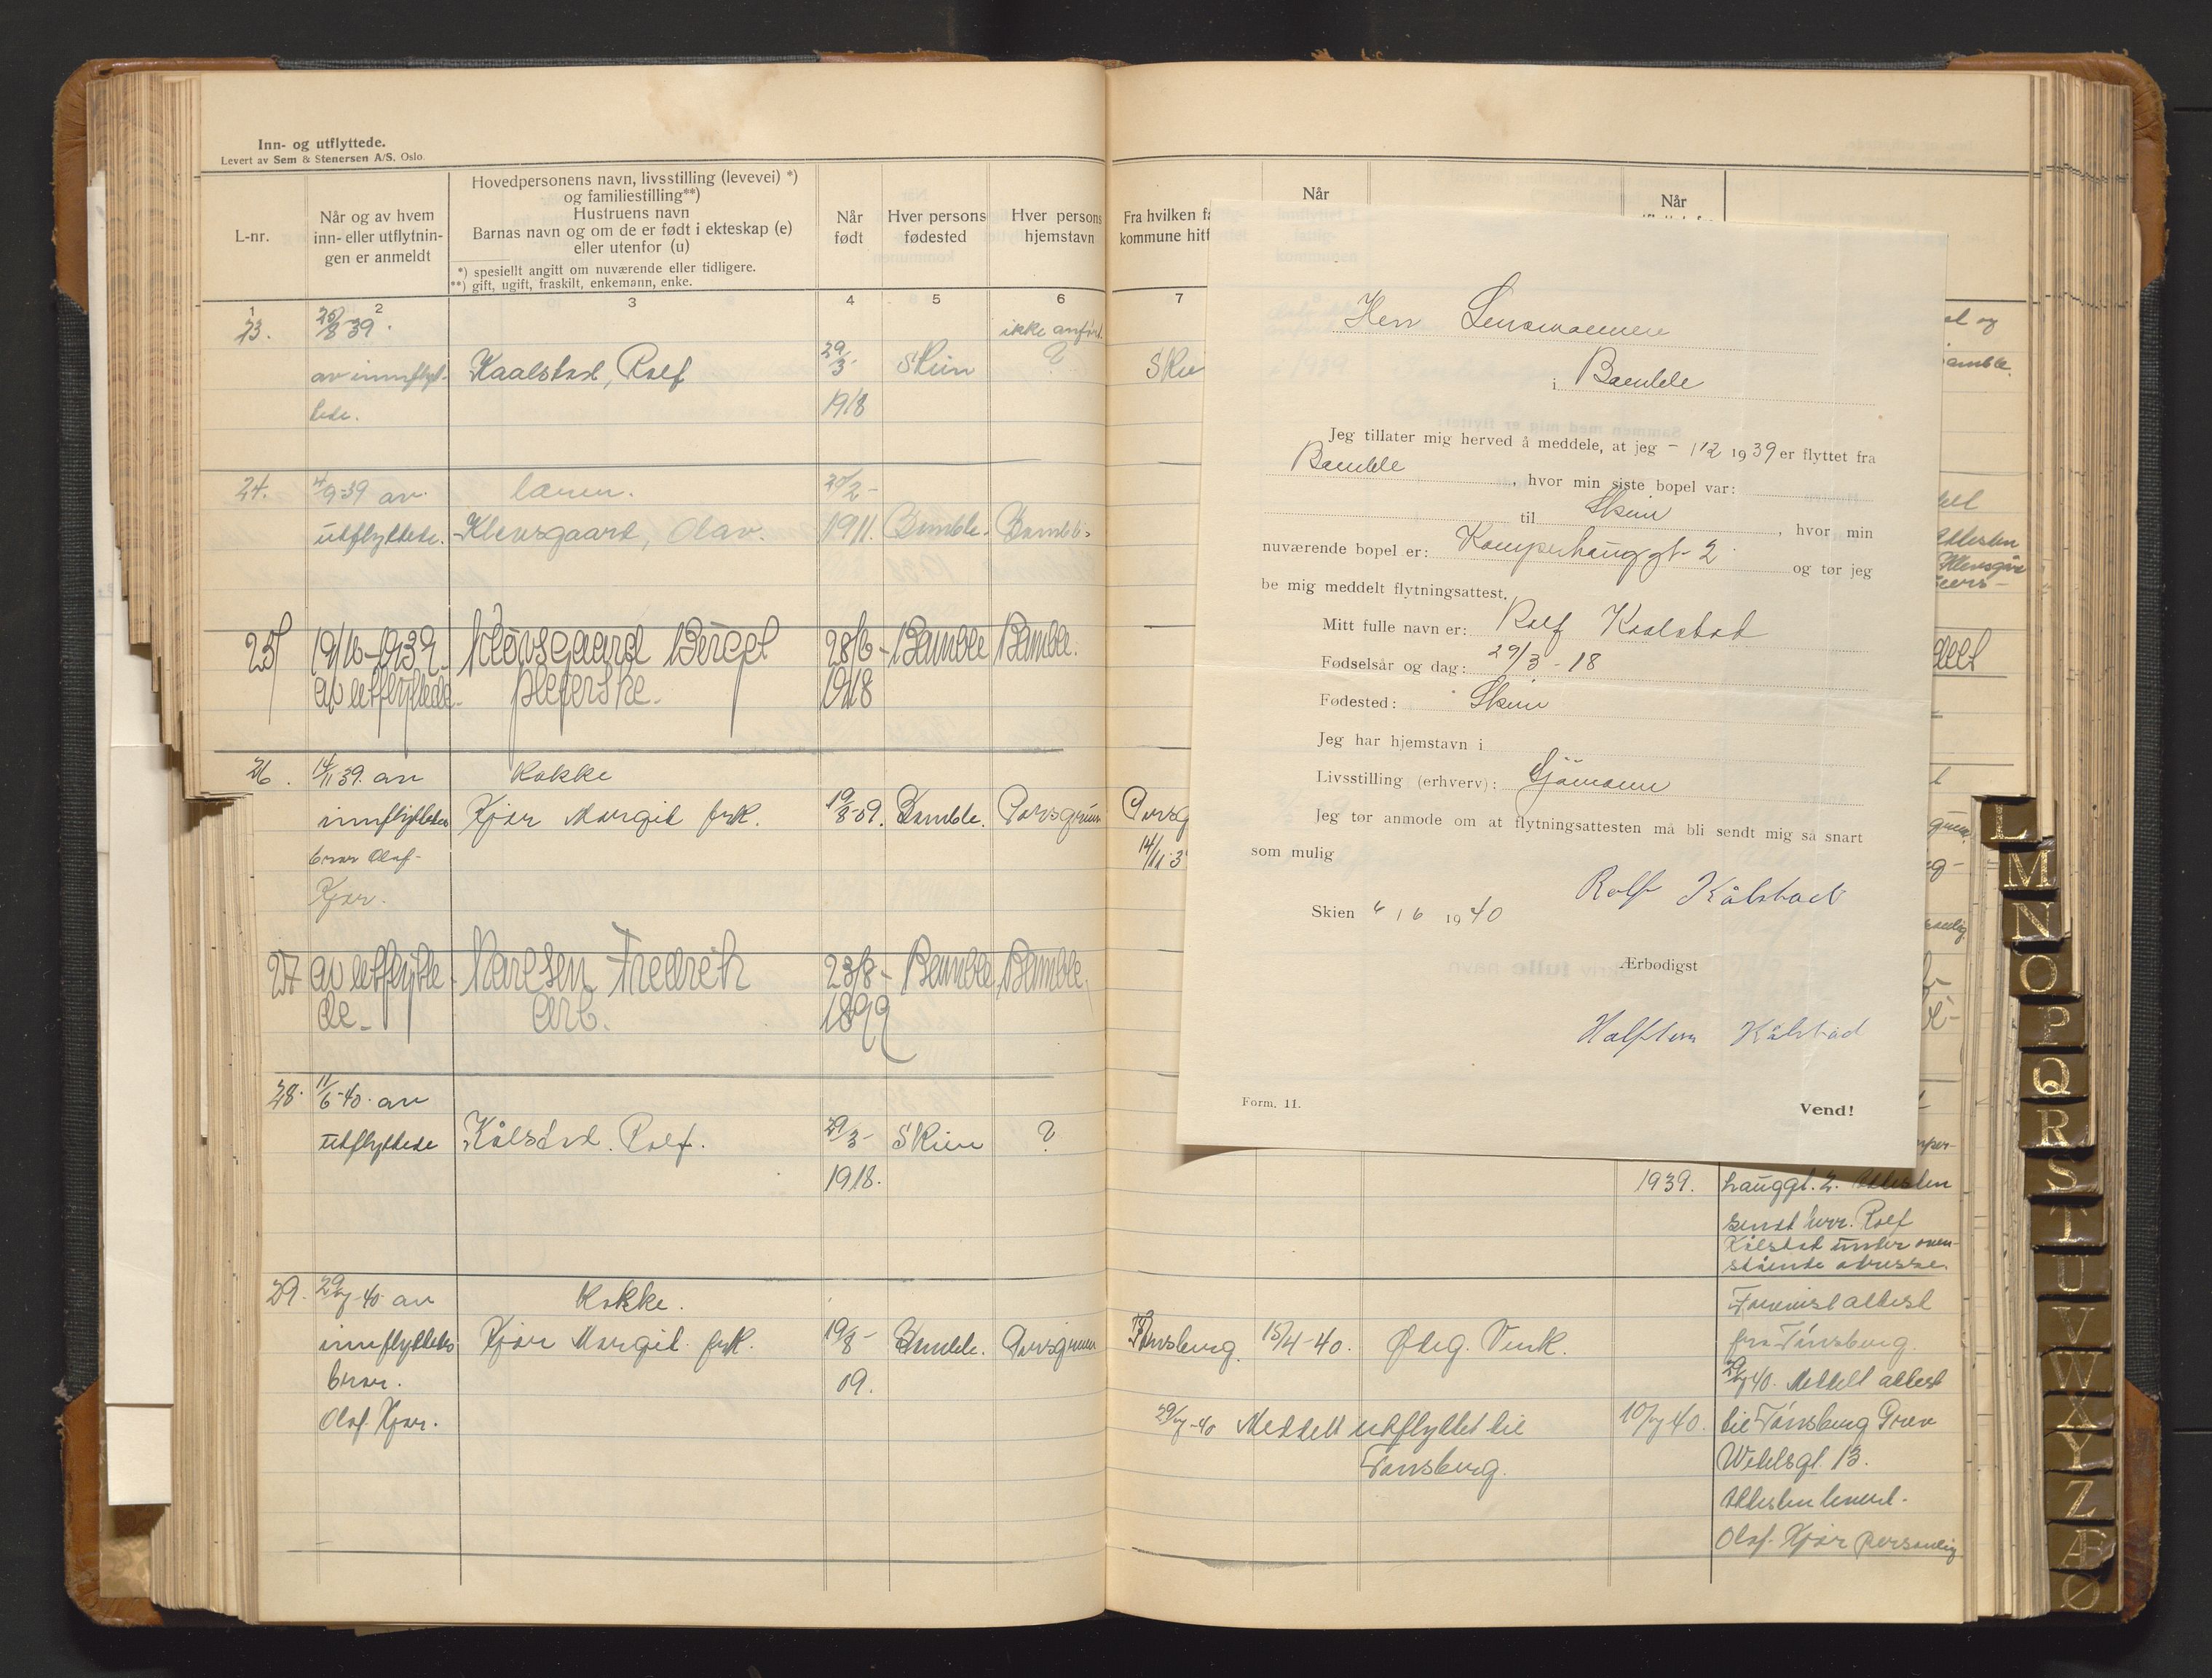 Inn- og utflyttede.
Levert av Sem & Stenersen A/S. Oslo.
L-nr.
Når og av hvem
inn- eller utflytnin-
gen er anmeldt
Hovedpersonens navn, livsstilling (levevei) *)
og familiestilling**)
Hustruens navn
Barnas navn og om de er født i ekteskap (e)
eller utenfor (u)
*) spesiellt angitt om nuværende eller tidligere.
**) gift, ugift, fraskilt, enkemann, enke.
Når
født
Hver persons
fødested
Hver persons
hjemstavn
1 2 3 4 5 6
23. 26/8-39. ikke anført
av innflyt- Kaalstad, Rolf 29/3- Skien ?
tede. 1918
24. 4/9-39 av lærer. 20/2-
utflyttede. Klevsgaard, Olav. 1911. Bamble. Bamble.
25 19/10-1939 Klevsgaard Birgit 28/6- Bamble Bamble.
av utflyttede pleierske. 1918
26. 14/11 39. av Kokke
innflyttedes Kjær Margit frk. 19/8-09. Bamble. Porsgrunn
bror Olaf
Kjær.
27 av utflytte- Karlsen Fredrik 23/8- Bamble Bamble.
de. Arb. 1899
28. 11/6-40. av
utflyttede Kålstad. Rolf. 29/3- Skien ?
1918.
29. 29/7-40 av Kokke.
innflyttedes Kjær Margit. frk. 19/8- Bamble. Porsgrunn
bror. 09.
Olaf. Kjær.
Fra hvilken
kommune hitt
Når
Når
7
Skie
Porsg
14/11-3
Herr Lensmannen
i Bamble
Jeg tillater mig herved å meddele, at jeg - / 12 1939 er flyttet fra
Bamble , hvor min siste bopel var:
til Skien , hvor min
nuværende bopel er: Kamperhauggt 2 og tør jeg
be mig meddelt flytningsattest.
Mitt fulle navn er: Rolf Kaalstad
Fødselsår og dag: 29/3-18
Fødested: Skien
Jeg har hjemstavn i
Livsstilling (erhverv): Sjömann
Jeg tør anmode om at flytningsattesten må bli sendt mig så snart
som mulig
Rolf Kålstad
Skien 6 / 6 1940
Ærbødigst
Halften Kålstad
Form. 11.
Vend!
1939. hauggt. 2. Attesten
sendt herr. Rolf
Kålstad under oven-
stående adresse.
Forevist attest
Tønsberg. 15/4-40. Ødeg. Verk. fra Tønsberg.
29/7 40. Meddelt attest
29/7-40 Meddelt utflyttet til 10/7 40. til Tønsberg Grev
Tønsberg. Wedelsgt. 13.
Attesten levert.
Olaf. Kjær personlig
L
M
N
O
P
Q
R
S
T
U
V
W
X
Y
Z
Æ
Ø